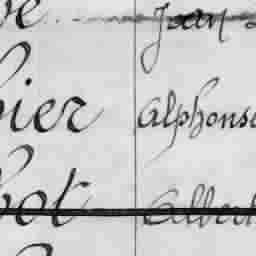 Jean
ier Alphonse
bot Albert